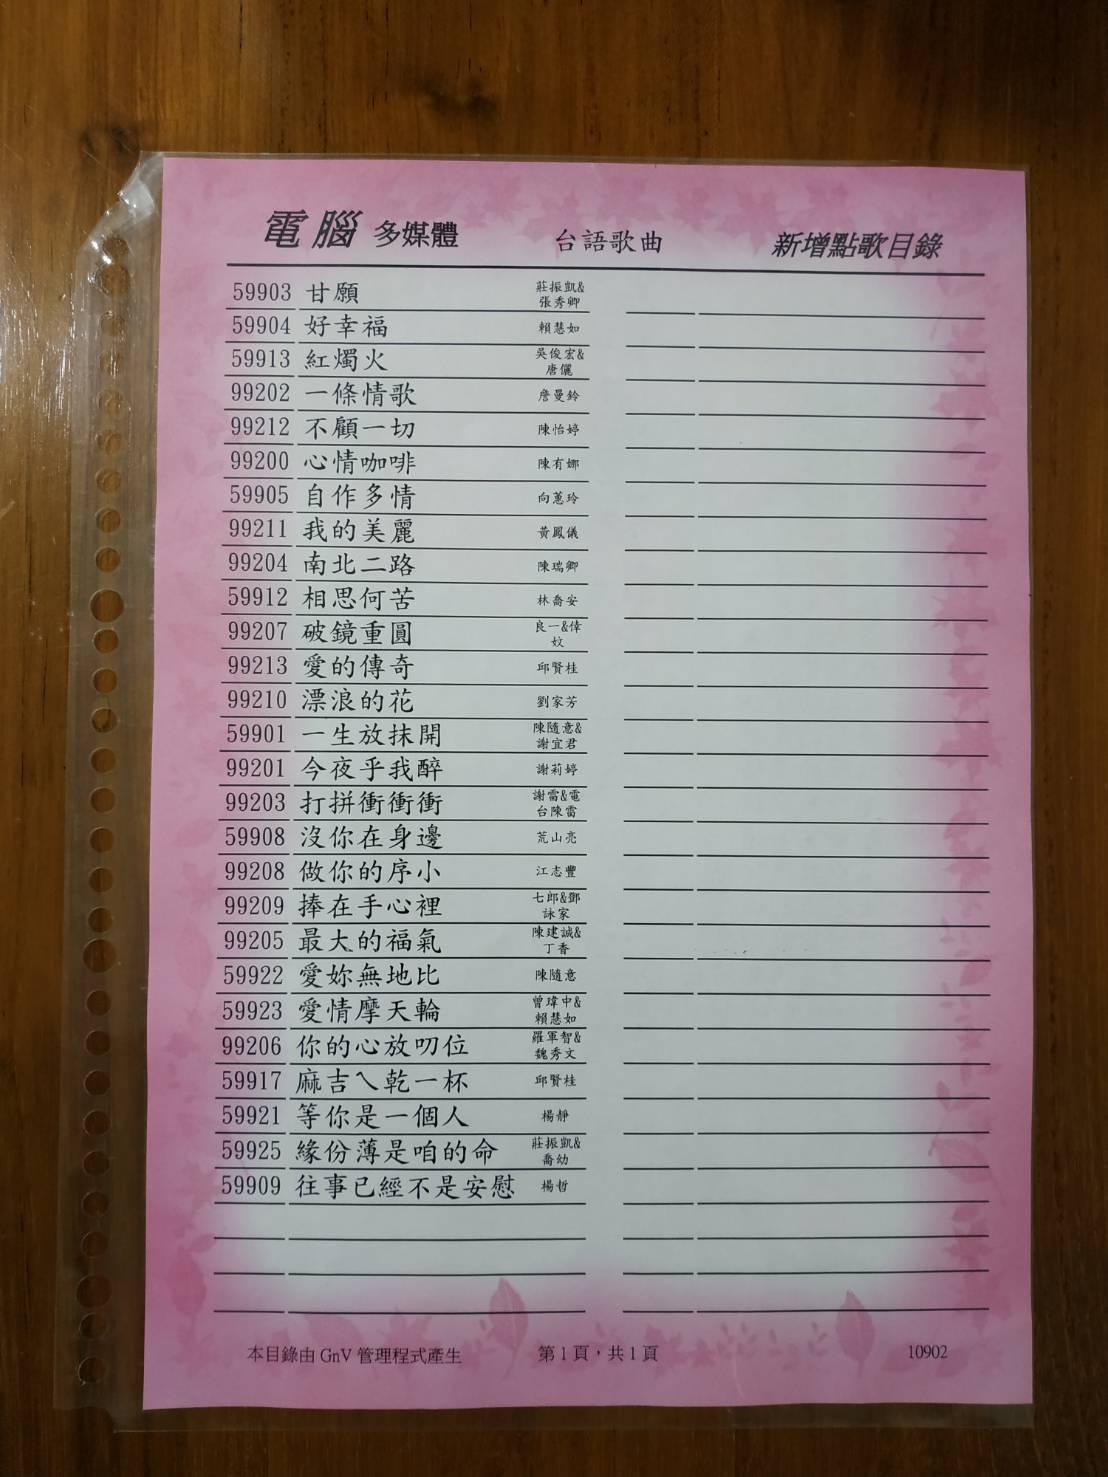 電腦 多媒體 台語歌曲 新增點歌目錄
59903 甘願 莊振凱&張秀卿
59904 好幸福 賴慧如
59913 紅燭火 吳俊宏&唐儷
99202 一條情歌 詹曼鈴
99212 不顧一切 陳怡婷
99200 心情咖啡 陳有娜
59905 自作多情 向蕙玲
99211 我的美麗 黃鳳儀
99204 南北二路 陳瑞卿
59912 相思何苦 林喬安
99207 破鏡重圓 良一&偉妏
99213 愛的傳奇 邱賢桂
99210 漂浪的花 劉家芳
59901 一生放抹開 陳隨意&謝宜君
99201 今夜乎我醉 謝莉婷
99203 打拼衝衝衝 謝雷&電台陳雷
59908 沒你在身邊 荒山亮
99208 做你的序小 江志豐
99209 捧在手心裡 七郎&鄧詠家
99205 最大的福氣 陳建誠&丁香
59922 愛妳無地比 陳隨意
59923 愛情摩天輪 曾瑋中&賴慧如
99206 你的心放叨位 羅軍智&魏秀文
59917 麻吉ㄟ乾一杯 邱賢桂
59921 等你是一個人 楊靜
59925 緣份薄是咱的命 莊振凱&喬幼
59909 往事已經不是安慰 楊哲
本目錄由 GnV 管理程式產生 第1頁，共1頁 10902